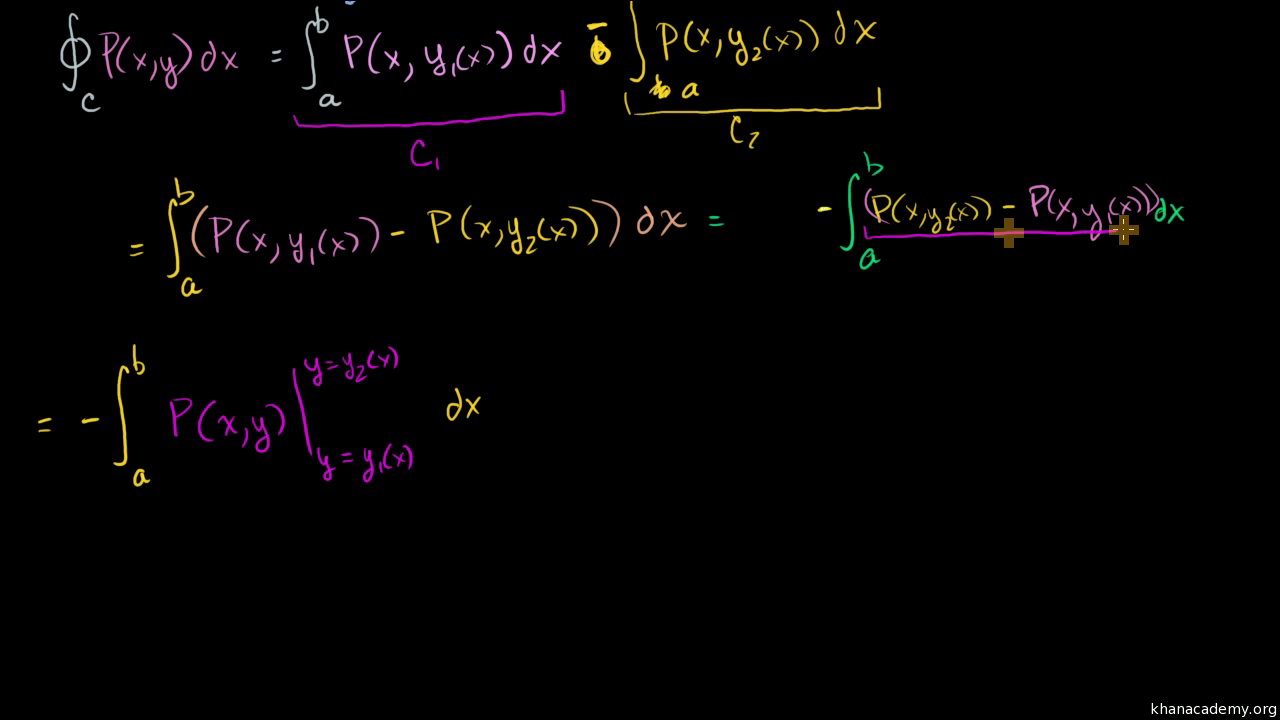 ∮_C P(x,y) dx = ∫_a^b P(x, y₁(x)) dx - ∫_a P(x, y₂(x)) dx
C₁
C₂
= ∫_a^b (P(x, y₁(x)) - P(x, y₂(x))) dx = - ∫_a^b (P(x, y₂(x)) - P(x, y₁(x))) dx
= - ∫_a^b P(x,y) |_{y = y₁(x)}^{y = y₂(x)} dx
khanacademy.org